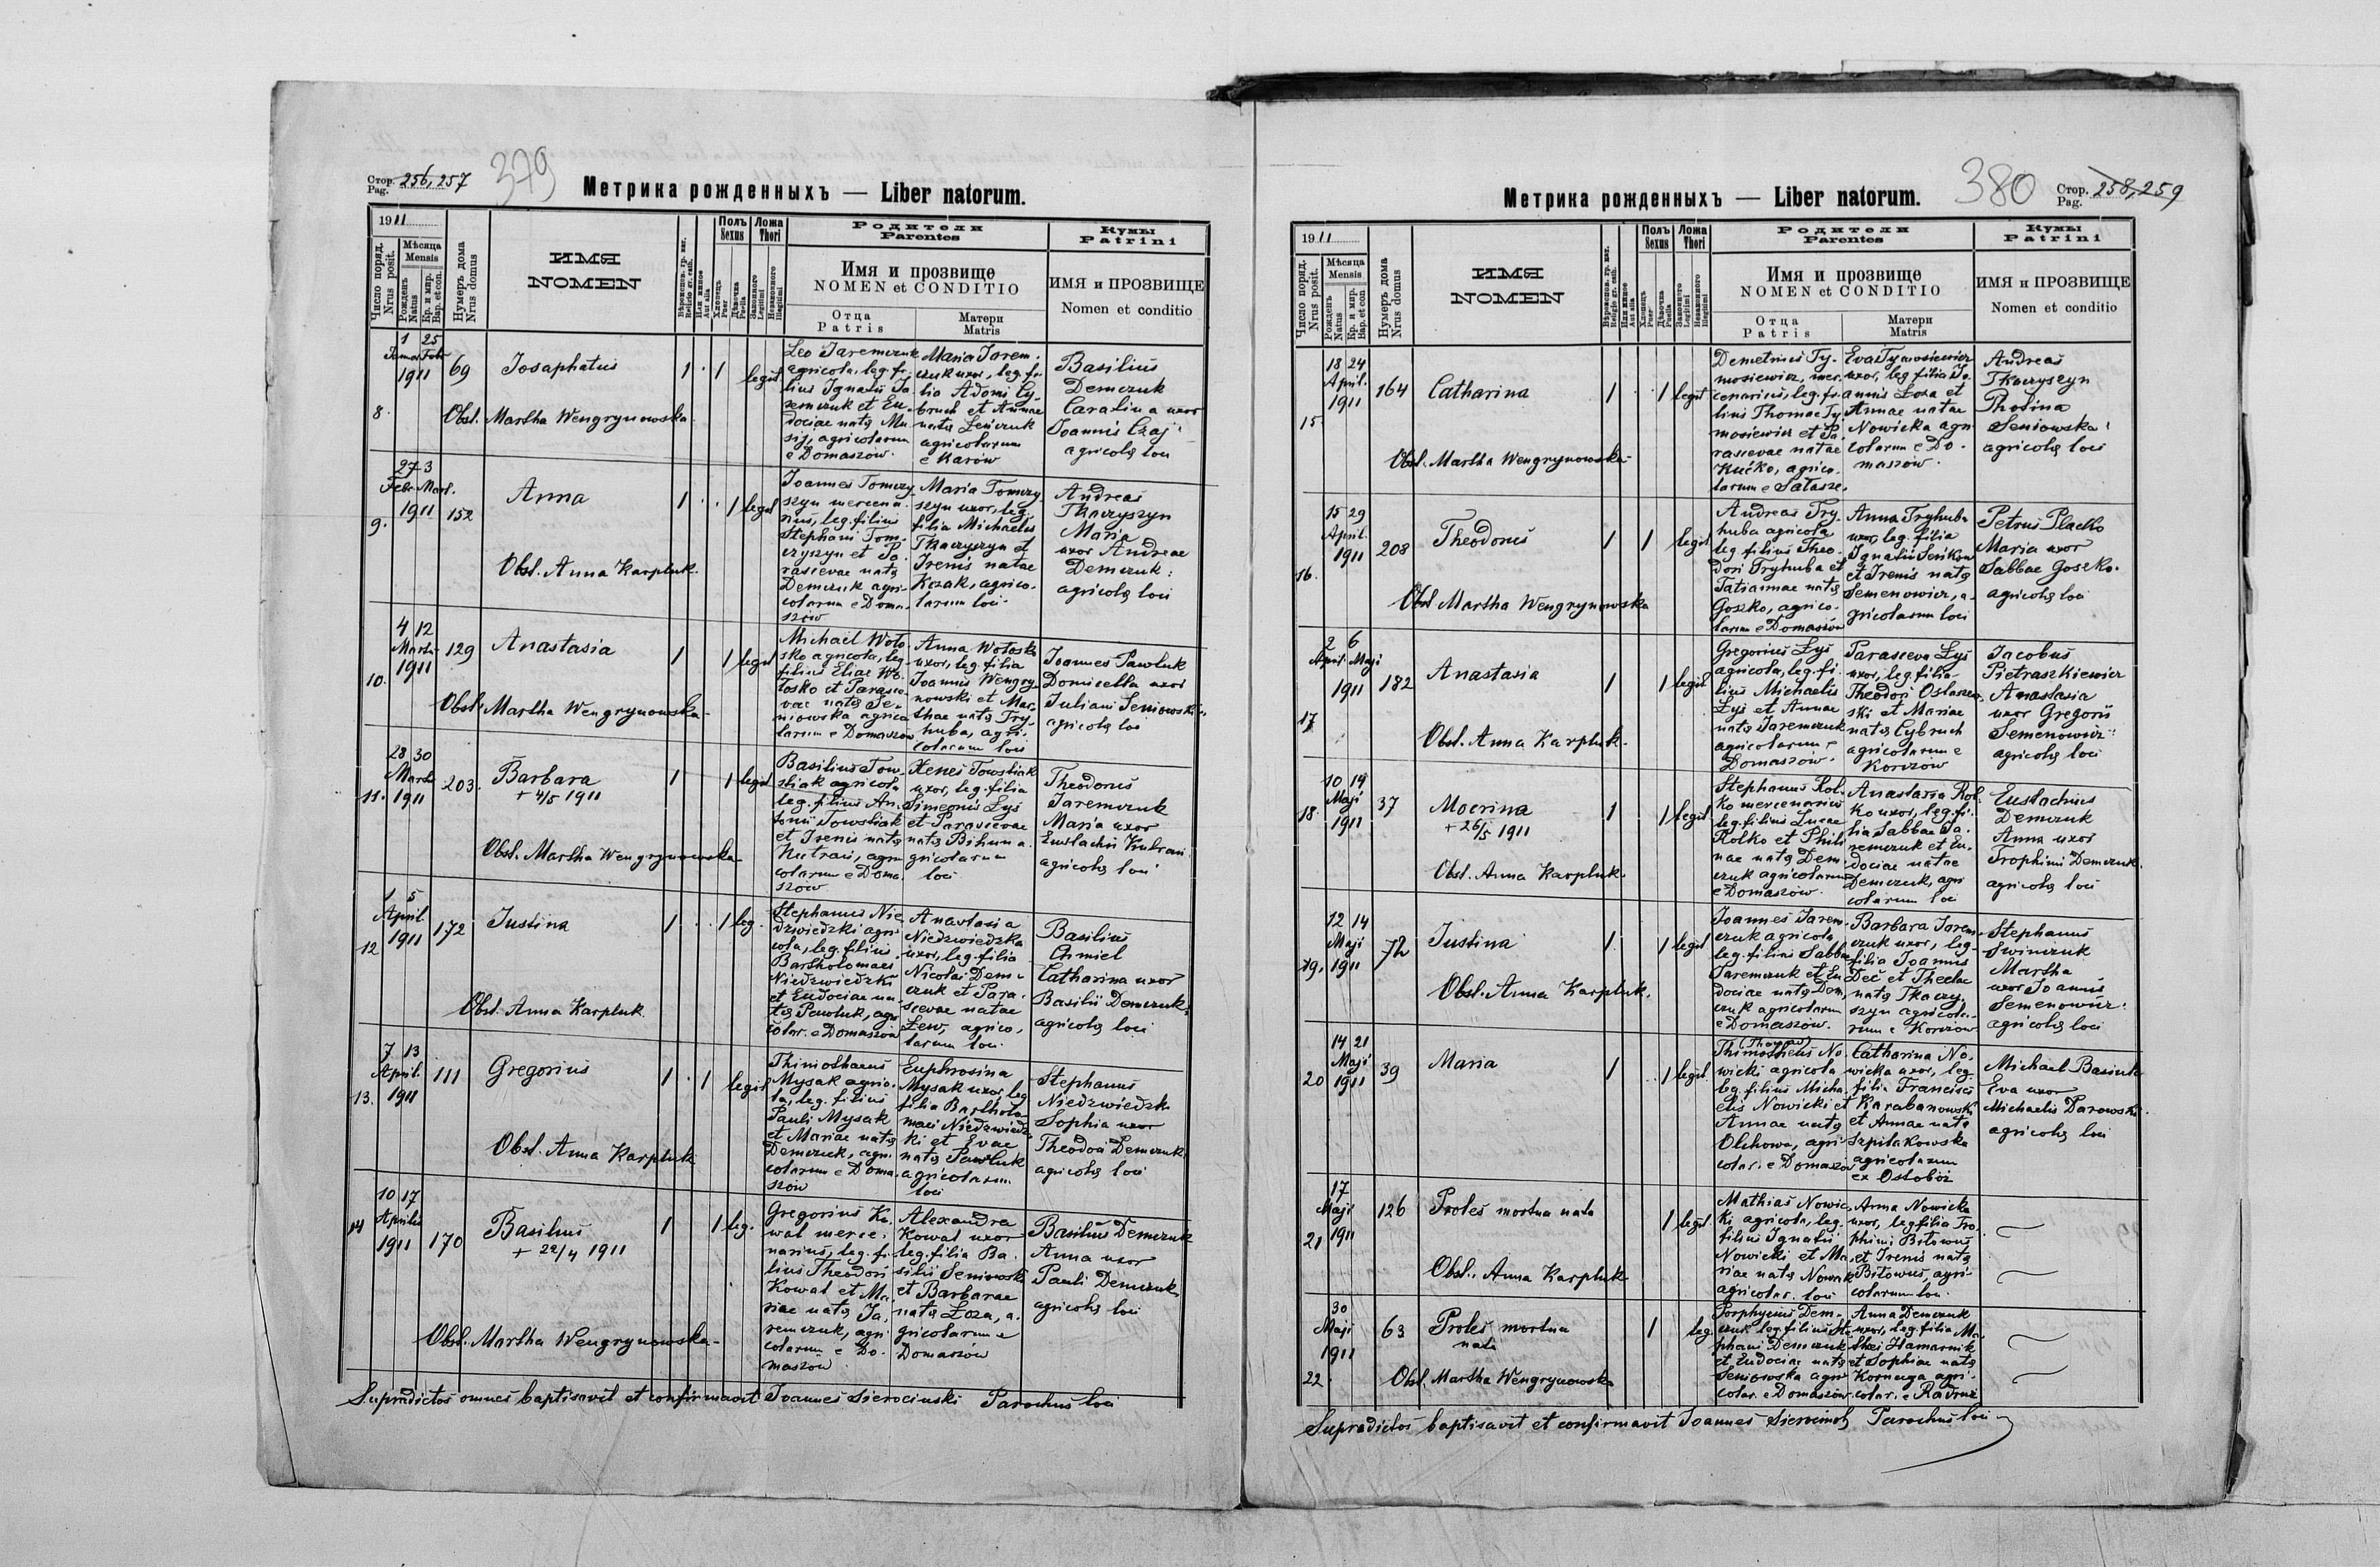 Стор. Pag. 256, 257
379
Метрика рожденныхъ — Liber natorum.
1911
Число поряд. Nrus posit.
Мѣсяца Mensis
Рожденъ Natus
Кр. и мир. Bap. et con.
Нумеръ дома Nrus domus
ИМЯ NOMEN
Вѣроисповъ. гр. каѳ. Religio gr. cath.
Или инное Aut alia
Полъ Sexus
Хлопець Puer
Дѣвочка Puella
Ложа Thori
Законного Legitimi
Незаконного Illegitimi
Родители Parentes
Имя и прозвище NOMEN et CONDITIO
Отца Patris
Матери Matris
Кумы Patrini
ИМЯ и ПРОЗВИЩЕ Nomen et conditio
8.
1 25
Febr
1911
69
Josaphatus
1 1 legit
Obst. Martha Wengrynowska
Leo Jaremczuk
agricola, leg. fi-
lius Ignatii Ja
remczuk et Eu-
dociae natę Mu
sij, agricolarum
e Domaszów.
Maria Jarem-
czuk uxor, leg. fi-
lia Adami Cy-
bruch et Annae
natę Zeńczuk
agricolarum
e Karów
Basilius
Demczuk
Carolina uxor
Joannis Czaj
agricolę loci
9.
27 3
Febr. Mart.
1911
152
Anna
1 1 legit
Obst. Anna Karpluk.
Joannes Tomczy
szyn mercena
rius, leg. filius
Stephani Tom-
czyszyn et Pa-
rascevae natę
Demczuk agri-
colarum e Doma
szów
Maria Tomczy
szyn uxor, leg.
filia Michaelis
Tkaczyszyn et
Irenis natae
Kozak, agrico-
larum loci.
Andreas
Tkaczyszyn
Maria
uxor Andreae
Demczuk
agricolę loci
10.
4 12
Martii
1911
129
Anastasia
1 1 legit
Obst. Martha Wengrynowska
Michael Woło-
sko agricola, leg
filius Eliae Wo
łosko et Parasce-
vae natę Se-
niowska agrico
larum e Domaszów
Anna Wołosko
uxor, leg. filia
Joannis Wengry-
nowski et Mar-
thae natę Try-
huba, agri-
colarum loci
Joannes Pawluk
Domicella uxor
Juliani Seniowski
agricolę loci
11.
28 30
Martii
1911
203.
Barbara
+ 4/5 1911
1 1 legit
Obst. Martha Wengrynowska
Basilius Tow-
stiak agricola
leg. filius An-
tonii Towstiak
et Irenis natę
Kutrań, agri-
colarum e Doma-
szów
Xenes Towstiak
uxor, leg. filia
Simeonis Łyś
et Parascevae
natę Bihun a-
gricolarum
loci
Theodorus
Jaremczuk
Maria uxor
Eustachii Kutrań
agricolę loci
12
1 5
April.
1911
172
Justina
1 1 leg.
Obst. Anna Karpluk.
Stephanus Nie
dzwiedzki agri
cola, leg. filius
Bartholomaei
Niedzwiedzki
et Eudociae na-
tę Pawluk, agri
colar. e Domaszów
Anastasia
Niedzwiedzka
uxor, leg. filia
Nicolai Dem-
czuk et Para-
scevae natae
Łew, agrico-
larum loci.
Basilius
Chmiel
Catharina uxor
Basilii Demczuk
agricolę loci
13.
7 13
April.
1911
111
Gregorius
1 1 legit
Obst. Anna Karpluk
Thimothaeus
Mysak agrico-
la, leg. filius
Pauli Mysak
et Mariae natę
Demczuk, agri
colarum e Doma-
szów
Euphrosina
Mysak uxor, leg
filia Bartholo-
maei Niedzwiedz-
ki et Evae
natę Pawluk
agricolarum
loci
Stephanus
Niedzwiedzki
Sophia uxor
Theodori Demczuk
agricolę loci
14
10 17
Aprilis
1911
170
Basilius
+ 22/4 1911
1 1 leg.
Obst. Martha Wengrynowska
Gregorius Ko-
wal merce-
narius, leg. fi-
lius Theodori
Kowal et Ma-
riae natę Ja-
remczuk, agri
colarum e Do-
maszów
Alexandra
Kowal uxor
leg. filia Ba-
silii Seniowski
et Barbarae
natę Łoza, a-
gricolarum e
Domaszów
Basilius Demczuk
Anna uxor
Pauli Demczuk
agricolę loci
Supradictos omnes baptisavit et confirmavit Joannes Sierociński Parochus loci
380
Стор. Pag. 258, 259
Метрика рожденныхъ — Liber natorum.
1911
Число поряд. Nrus posit.
Мѣсяца Mensis
Рожденъ Natus
Кр. и мир. Bap. et con
Нумеръ дома Nrus domus
ИМЯ NOMEN
Вѣроисповъ. гр. каѳ. Religio gr. cath.
Или инное Aut alia
Полъ Sexus
Хлопець Puer
Дѣвочка Puella
Ложа Thori
Законного Legitimi
Незаконного Illegitimi
Родители Parentes
Имя и прозвище NOMEN et CONDITIO
Отца Patris
Матери Matris
Кумы Patrini
ИМЯ и ПРОЗВИЩЕ Nomen et conditio
15.
18 24
April.
1911
164
Catharina
1 1 legit
Obst. Martha Wengrynowska
Demetrius Ty-
mosiewicz, mer-
cenarius, leg. fi-
lius Thomae Ty
mosiewicz et Pa
rascevae natae
Kućko, agrico-
larum e Sałasze.
Eva Tymosiewicz
uxor, leg. filia Jo-
annis Łoza et
Annae natae
Nowicka agri
colarum e Do-
maszów.
Andreas
Tkaczyszyn
Thodina
Seniowska
agricolę loci
16.
15 29
April.
1911
208
Theodorus
1 1 legit
Obst Martha Wengrynowska
Andreas Try-
huba agricola
leg. filius Theo-
dori Tryhuba et
Tatiannae natę
Goszko, agrico-
larum e Domaszów
Anna Tryhuba
uxor, leg. filia
Ignatii
et Irenis natę
Semenowicz, a-
gricolarum loci
Petrus Placko
Maria uxor
Sabbae Goszko.
agricolę loci
17
2 6
April. Maji
1911
182
Anastasia
1 1 legit
Obst. Anna Karpluk.
Gregorius Łyś
agricola, leg. fi-
lius Michaelis
Łyś et Annae
natę Jaremczuk
agricolarum e
Domaszów.
Parasceva Łyś
uxor, leg. filia
Theodori Ostaszew
ski et Mariae
natę Cybruch
agricolarum e
Korczów
Jacobus
Pietraszkiewicz
Anastasia
uxor Gregorii
Semenowicz
agricolę loci
18.
10 19
Maji
1911
37
Macrina
+ 26/5 1911
1 1 legit
Obst. Anna Karpluk.
Stephanus Rol-
ko mercenarius
leg. filius Lucae
Rolko et Phili
nae natę Dem-
czuk agricolarum
e Domaszów.
Anastasia Rol-
ko uxor, leg. fi-
lia Sabbae Ja-
remczuk et Eu-
dociae natae
Demczuk, agri
colarum loci
Eustachius
Demczuk
Anna uxor
Trophimi Demczuk
agricolę loci
19.
12 14
Maji
1911
72
Justina
1 1 legit
Obst. Anna Karpluk.
Joannes Jarem-
czuk agricola
leg. filius Sabbae
Jaremczuk et Eu
dociae natę Dem-
czuk agricolarum
e Domaszów.
Barbara Jarem-
czuk uxor, leg-
filia Joannis
Deć et Theclae
natę Tkaczy-
szyn agricola-
rum e Korczów
Stephanus
Swinczuk
Martha
uxor Joannis
Semenowicz
agricolę loci
20
14 21
Maji
1911
39
Maria
1 1 legit
(Thomas)
Thimotheus No-
wicki agricola
leg. filius Micha
elis Nowicki et
Annae natę
Olchowa, agri-
colar. e Domaszów
Catharina No-
wicka uxor, leg.
filia Francisci
Karabanowski
et Annae natę
Szpilakowska
agricolarum
ex Ostobóż
Michael Basiuk
Eva uxor
Michaelis Parowski
agricolę loci
21
17
Maji
1911
126
Proles mortua nata
1 legit
Obst. Anna Karpluk
Mathias Nowic-
ki agricola, leg.
filius Ignatii
Nowicki et Ma-
riae natę Nowak
agricolar. loci
Anna Nowicka
uxor, leg filia Tro-
phimi Biłowus
et Irenis natę
Biłowus, agri-
colarum loci
22.
30
Maji
1911
63
Proles mortua
nata
1 leg
Obst. Martha Wengrynowska
Porphyrius Dem-
czuk leg. filius Ste-
phani Demczuk
et Eudociae natę
Seniowska agri
colar. e Domaszów
Anna Demczuk
uxor, leg. filia Ma-
thei Hamarnik
et Sophiae natę
Kornaga agri-
colar. e Radruż
Supradictos baptisavit et confirmavit Joannes Sierociński Parochus loci